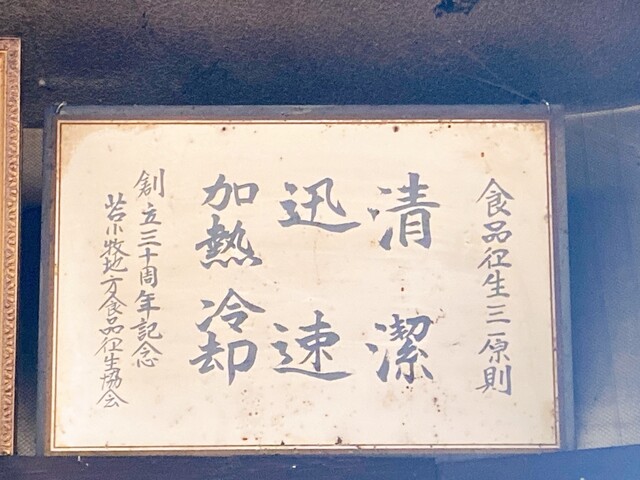 食品衛生三原則
清潔
迅速
加熱冷却
創立三十周年記念
苫小牧地方食品衛生協会